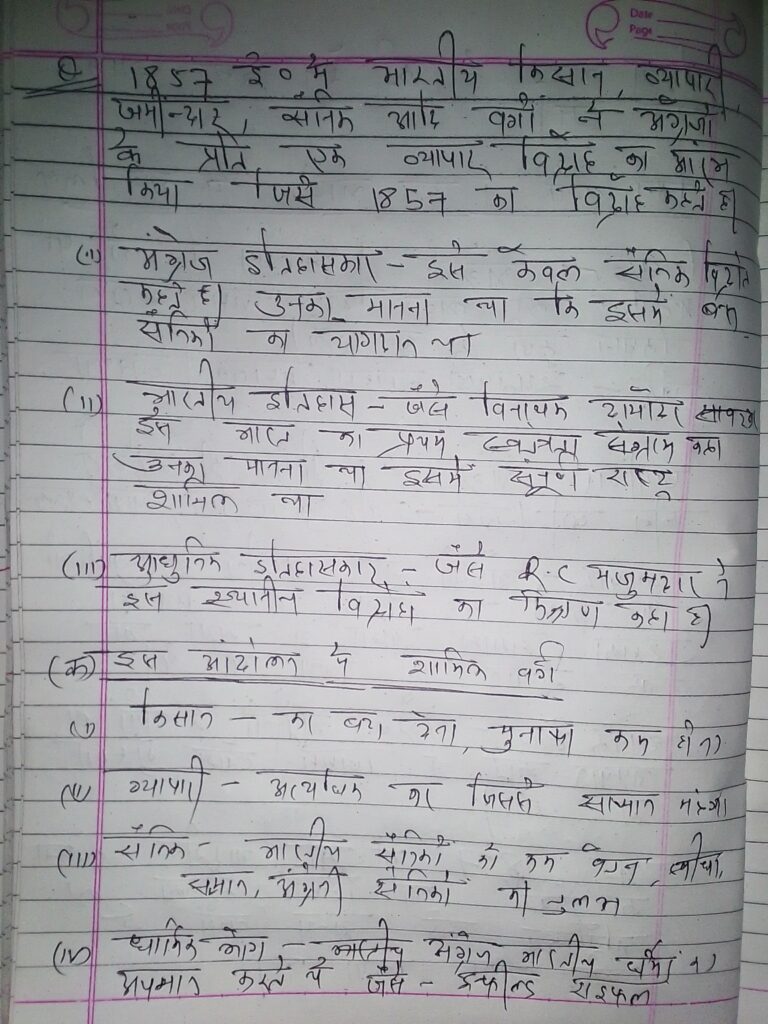 Date
Page
Q 1857 ई० में भारतीय किसान, व्यापारी
जमीन्दार, सैनिक आदि वर्गो ने अंग्रेजो
के प्रति एक व्यापार विद्रोह का आरंभ
किया जिसे 1857 का विद्रोह कहते है।
(i) अंग्रेज इतिहासकार - इसे केवल सैनिक विद्रोह
कहते है। उनका मानना था कि इसमे केवल
सैनिको का योगदान था
(ii) भारतीय इतिहास - जैसे विनायक दामोदर सावरकर
इसे भारत का प्रथम स्वतंत्रता संग्राम कहा
उनका मानना था इसमे संपूर्ण राष्ट्र
शामिल था
(iii) आधुनिक इतिहासकार - जैसे R.C मजुमदार ने
इसे स्थानीय विद्रोह का कहा है।
(क) इस आंदोलन मे शामिल वर्ग
(i) किसान - कर बढ़ा देना, मुनाफा कम होना
(ii) व्यापारी - अत्यधिक कर जिससे सामान मंहगा
(iii) सैनिक - भारतीय सैनिको को कम वेतन,
समान, अंग्रेजी सैनिको की तुलना
(iv) धार्मिक लोग - अंग्रेज भारतीय धर्म का
अपमान करते थे जैसे - इन्फील्ड राइफल